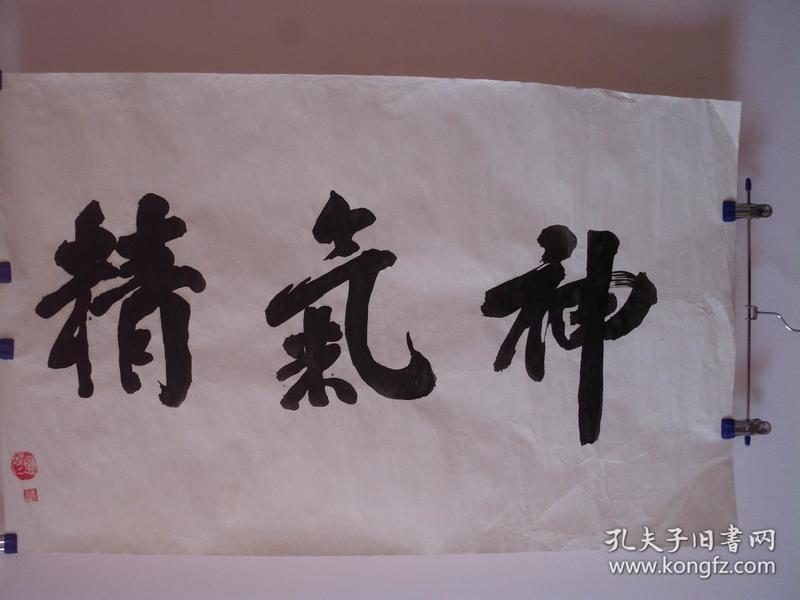 精氣神
孔夫子旧書网
www.kongfz.com